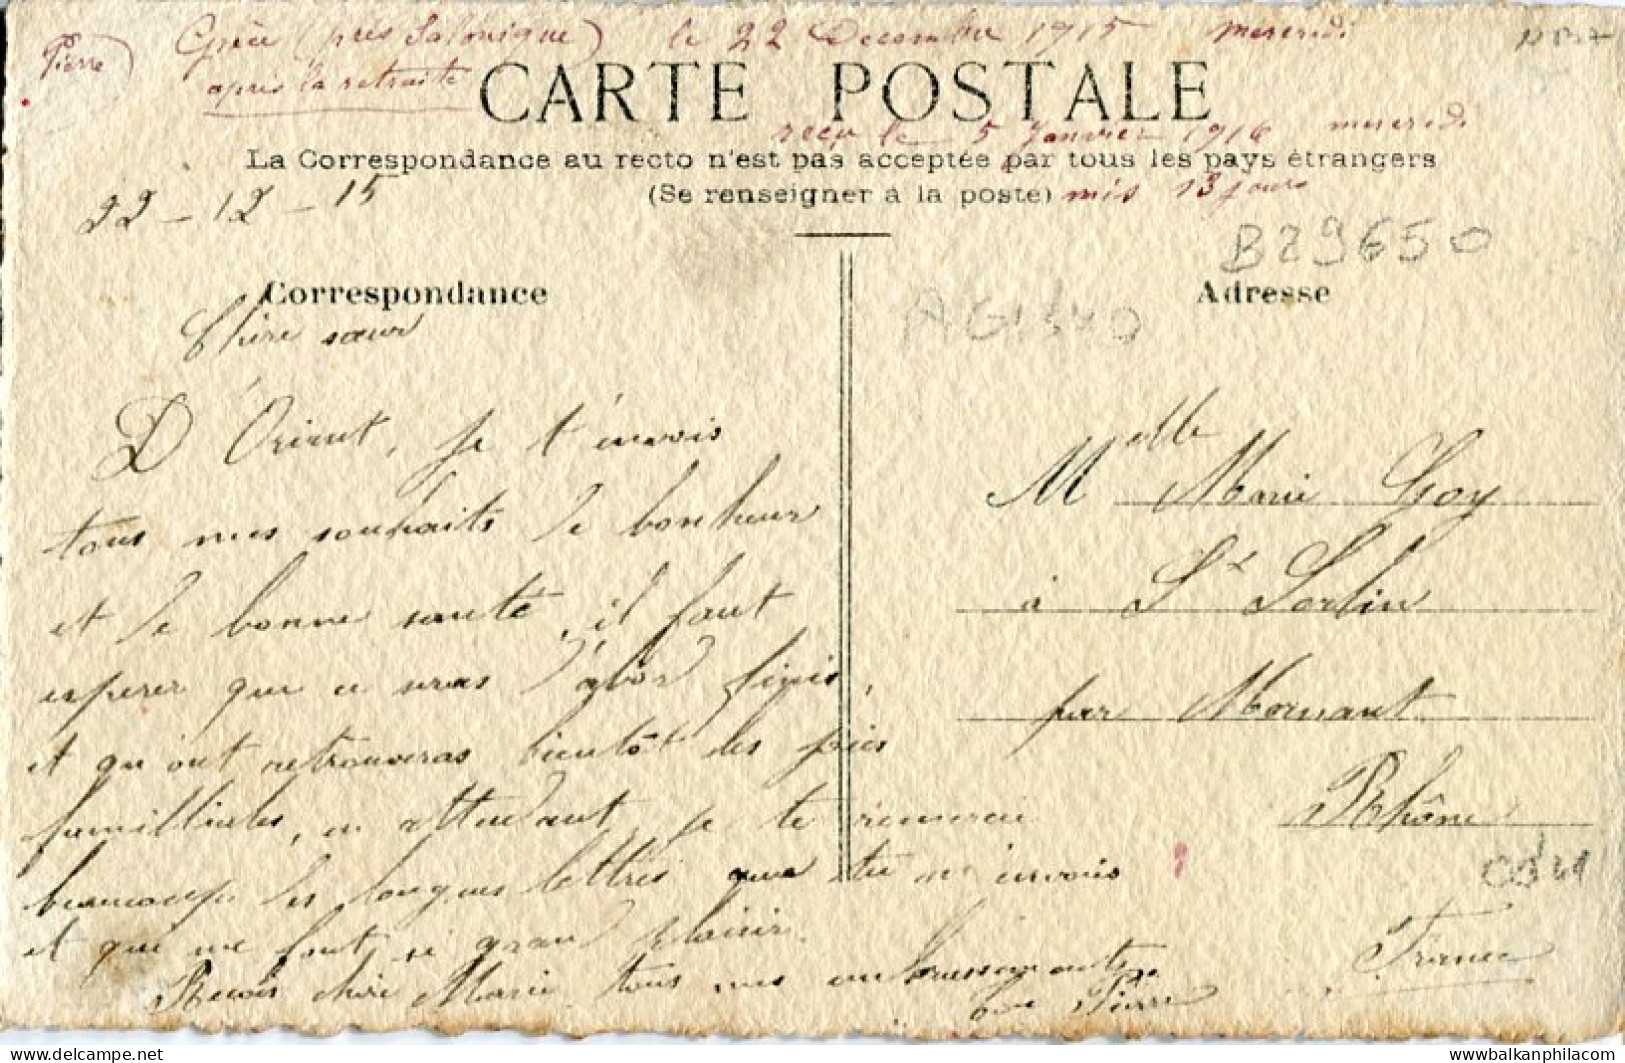 Pierre
Grèce (près Salonique) le 22 Decembre 1915 mercredi
après la retraite
CARTE POSTALE
reçu le 5 Janvier 1916 mercredi
La Correspondance au recto n'est pas acceptée par tous les pays étrangers
(Se renseigner à la poste) mis 13 jours
22 - 12 - 15
B29650
Correspondance
Adresse
Chère sœur
D'Orient, je t'envois
tous mes souhaits de bonheur
et de bonne santé, il faut
esperer que ce seras d'abor finis,
et qu'ont retrouveras bientôt les joies
familliales, en attendant je te remercie
beaucoup les longues lettres que tu m'envois
et qui me font si grand plaisir.
Recois chère Marie tous mes embrassements
Pierre
Melle Marie Goy
à St Sorlin
par Mornant
Rhône
France
www.balkanphila.com
delcampe.net